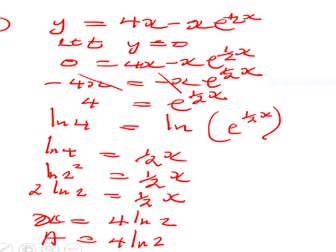 )
y = 4x - xe^{1/2 x}
let y = 0
0 = 4x - xe^{1/2 x}
-4x = -xe^{1/2 x}
4 = e^{1/2 x}
ln 4 = ln (e^{1/2 x})
ln 4 = 1/2 x
ln 2² = 1/2 x
2 ln 2 = 1/2 x
x = 4 ln 2
A = 4 ln 2